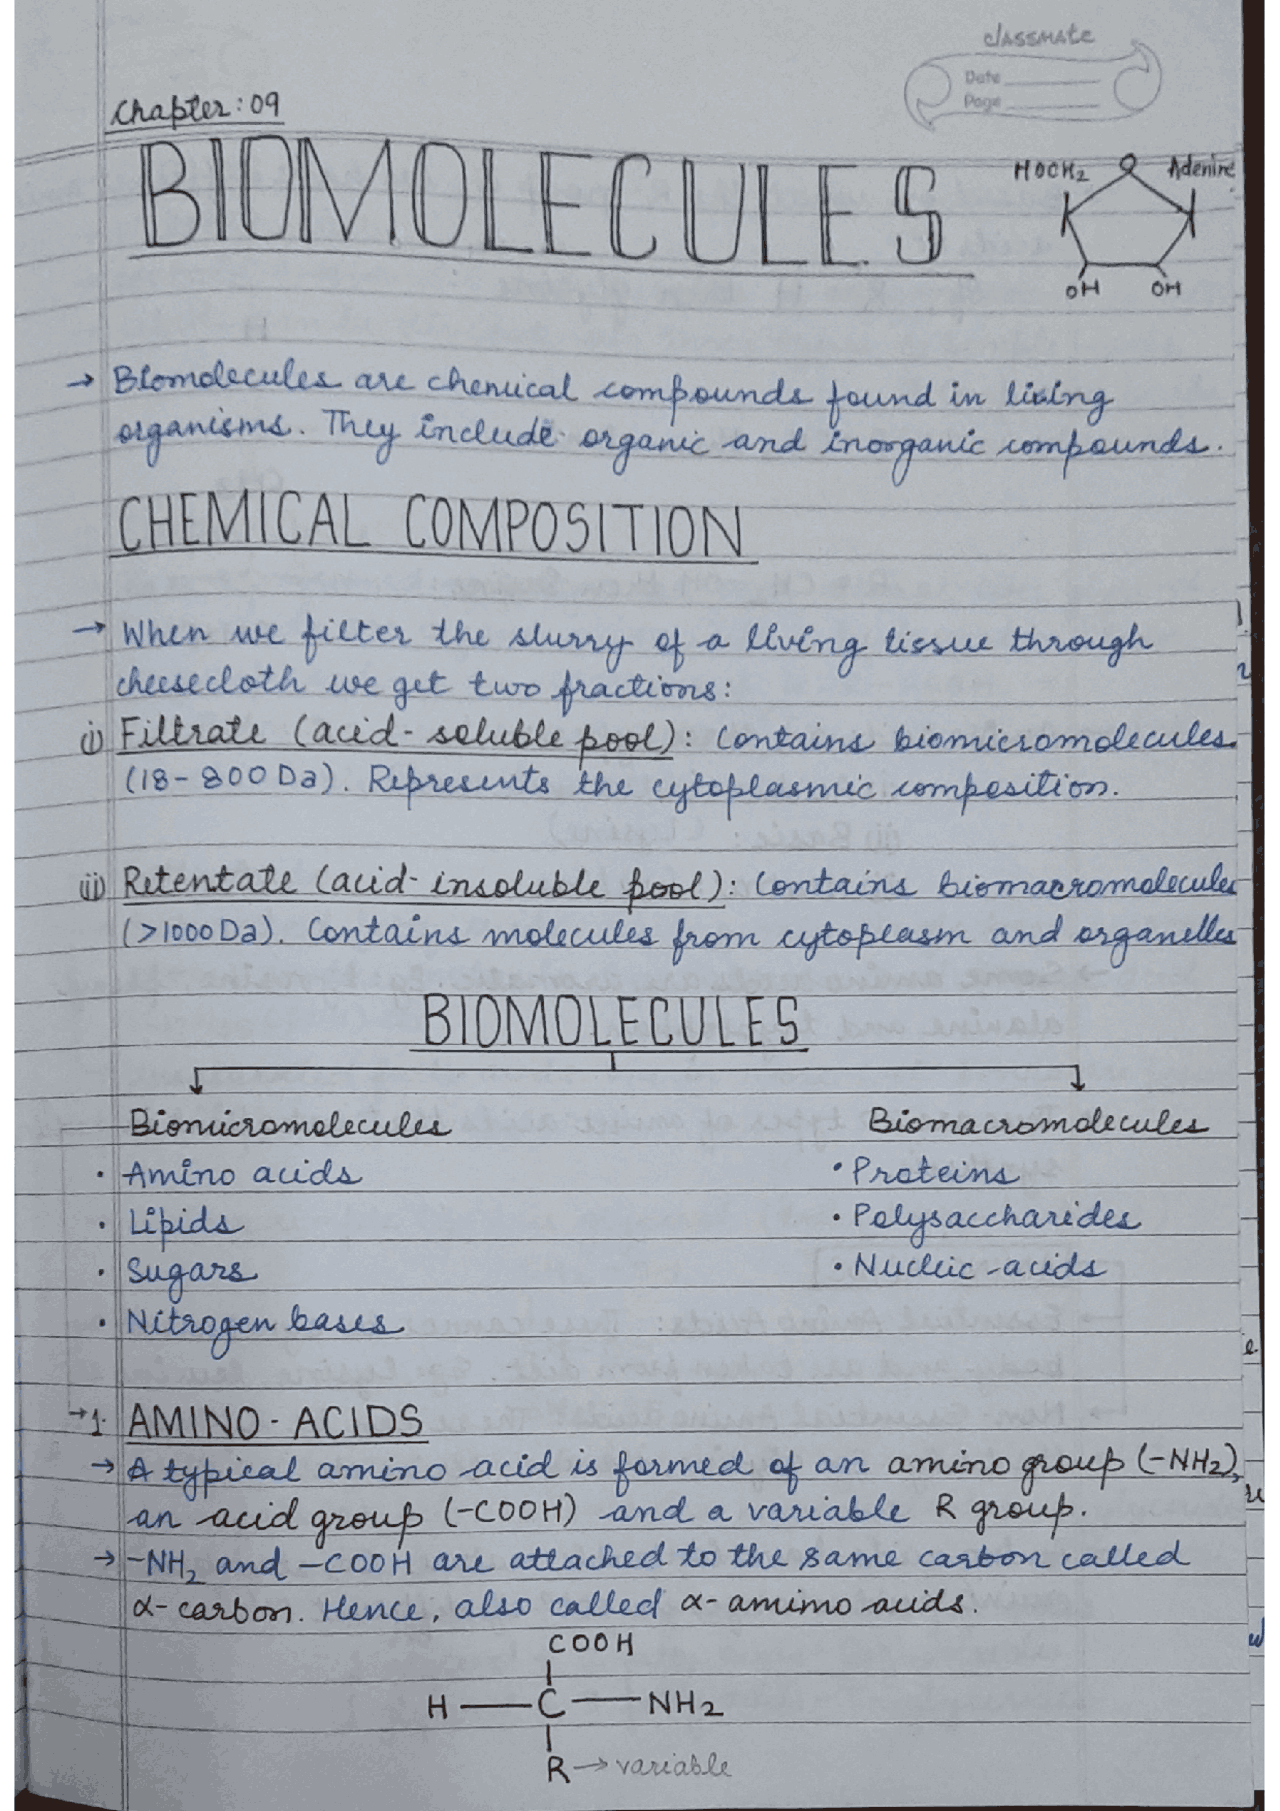 classmate
Date
Page
Chapter: 09
BIOMOLECULES
HOCH2 O Adenine
OH OH
→ Biomolecules are chemical compounds found in living
organisms. They include organic and inorganic compounds.
CHEMICAL COMPOSITION
→ When we filter the slurry of a living tissue through
cheesecloth we get two fractions:
i) Filtrate (acid-soluble pool): Contains biomicromolecules.
(18-800 Da). Represents the cytoplasmic composition.
ii) Retentate (acid-insoluble pool): Contains biomacromolecules
(>1000 Da). Contains molecules from cytoplasm and organelles
BIOMOLECULES
Biomicromolecules Biomacromolecules
• Amino acids • Proteins
• Lipids • Polysaccharides
• Sugars • Nucleic-acids
• Nitrogen bases
→ 1. AMINO-ACIDS
→ A typical amino acid is formed of an amino group (-NH2),
an acid group (-COOH) and a variable R group.
→ -NH2 and -COOH are attached to the same carbon called
α-carbon. Hence, also called α-amimo acids.
COOH
H — C — NH2
R → variable